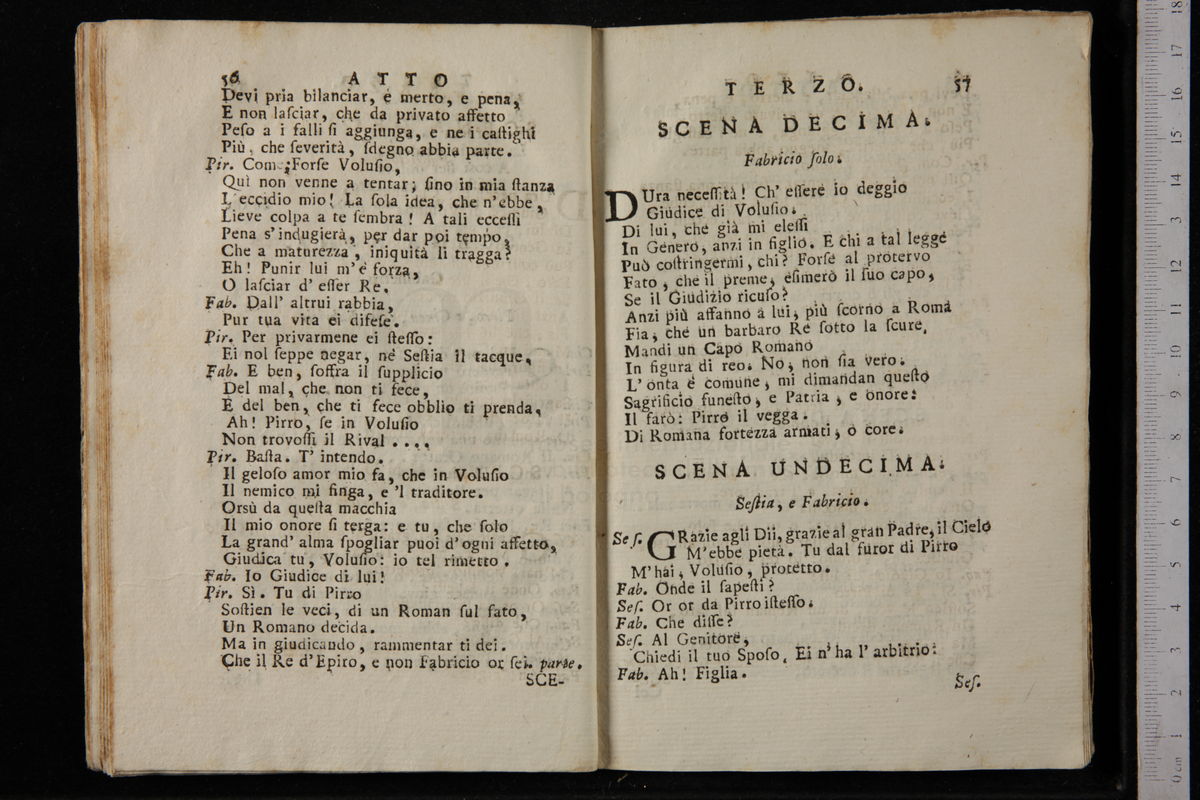 56 ATTO
Devi pria bilanciar, e merto, e pena,
E non laſciar, che da privato affetto
Peſo a i falli ſi aggiunga, e ne i caſtighi
Più, che ſeverità, ſdegno abbia parte.
Pir. Come? Forſe Voluſio,
Quì non venne a tentar; ſino in mia ſtanza
L'eccidio mio! La ſola idea, che n'ebbe,
Lieve colpa a te ſembra! A tali ecceſſi
Pena s'indugierà, per dar poi tempo,
Che a maturezza, iniquità li tragga?
Eh! Punir lui m'è forza,
O laſciar d'eſſer Re.
Fab. Dall' altrui rabbia,
Pur tua vita ei difeſe.
Pir. Per privarmene ei ſteſſo:
Ei nol ſeppe negar, nè Seſtia il tacque,
Fab. E ben, ſoffra il ſupplicio
Del mal, che non ti fece,
E del ben, che ti fece obblio ti prenda,
Ah! Pirro, ſe in Voluſio
Non trovoſſi il Rival ....
Pir. Baſta. T' intendo.
Il geloſo amor mio fa, che in Voluſio
Il nemico mi finga, e 'l traditore.
Orsù da queſta macchia
Il mio onore ſi terga: e tu, che ſolo
La grand' alma ſpogliar puoi d'ogni affetto,
Giudica tu, Voluſio: io tel rimetto.
Fab. Io Giudice di lui!
Pir. Sì. Tu di Pirro
Soſtien le veci, di un Roman ſul fato,
Un Romano decida.
Ma in giudicando, rammentar ti dei.
Che il Re d'Epiro, e non Fabricio or ſei. parte.
SCE-
TERZO. 57
SCENA DECIMA.
Fabricio ſolo.
DUra neceſſità! Ch' eſſere io deggio
Giudice di Voluſio.
Di lui, che già mi eleſſi
In Genero, anzi in figlio. E chi a tal legge
Può coſtringermi, chi? Forſe al protervo
Fato, che il preme, eſimerò il ſuo capo,
Se il Giudizio ricuſo?
Anzi più affanno a lui, più ſcorno a Roma
Fia, che un barbaro Re ſotto la ſcure,
Mandi un Capo Romano
In figura di reo. No, non ſia vero.
L' onta è comune, mi dimandan queſto
Sagrificio funeſto, e Patria, e onore:
Il farò: Pirro il vegga.
Di Romana fortezza armati, o core.
SCENA UNDECIMA.
Seſtia, e Fabricio.
Seſ. GRazie agli Dii, grazie al gran Padre, il Cielo
M'ebbe pietà. Tu dal furor di Pirro
M'hai, Voluſio, protetto.
Fab. Onde il ſapeſti?
Seſ. Or or da Pirro iſteſſo.
Fab. Che diſſe?
Seſ. Al Genitore,
Chiedi il tuo Spoſo. Ei n' ha l' arbitrio:
Fab. Ah! Figlia.
Seſ.